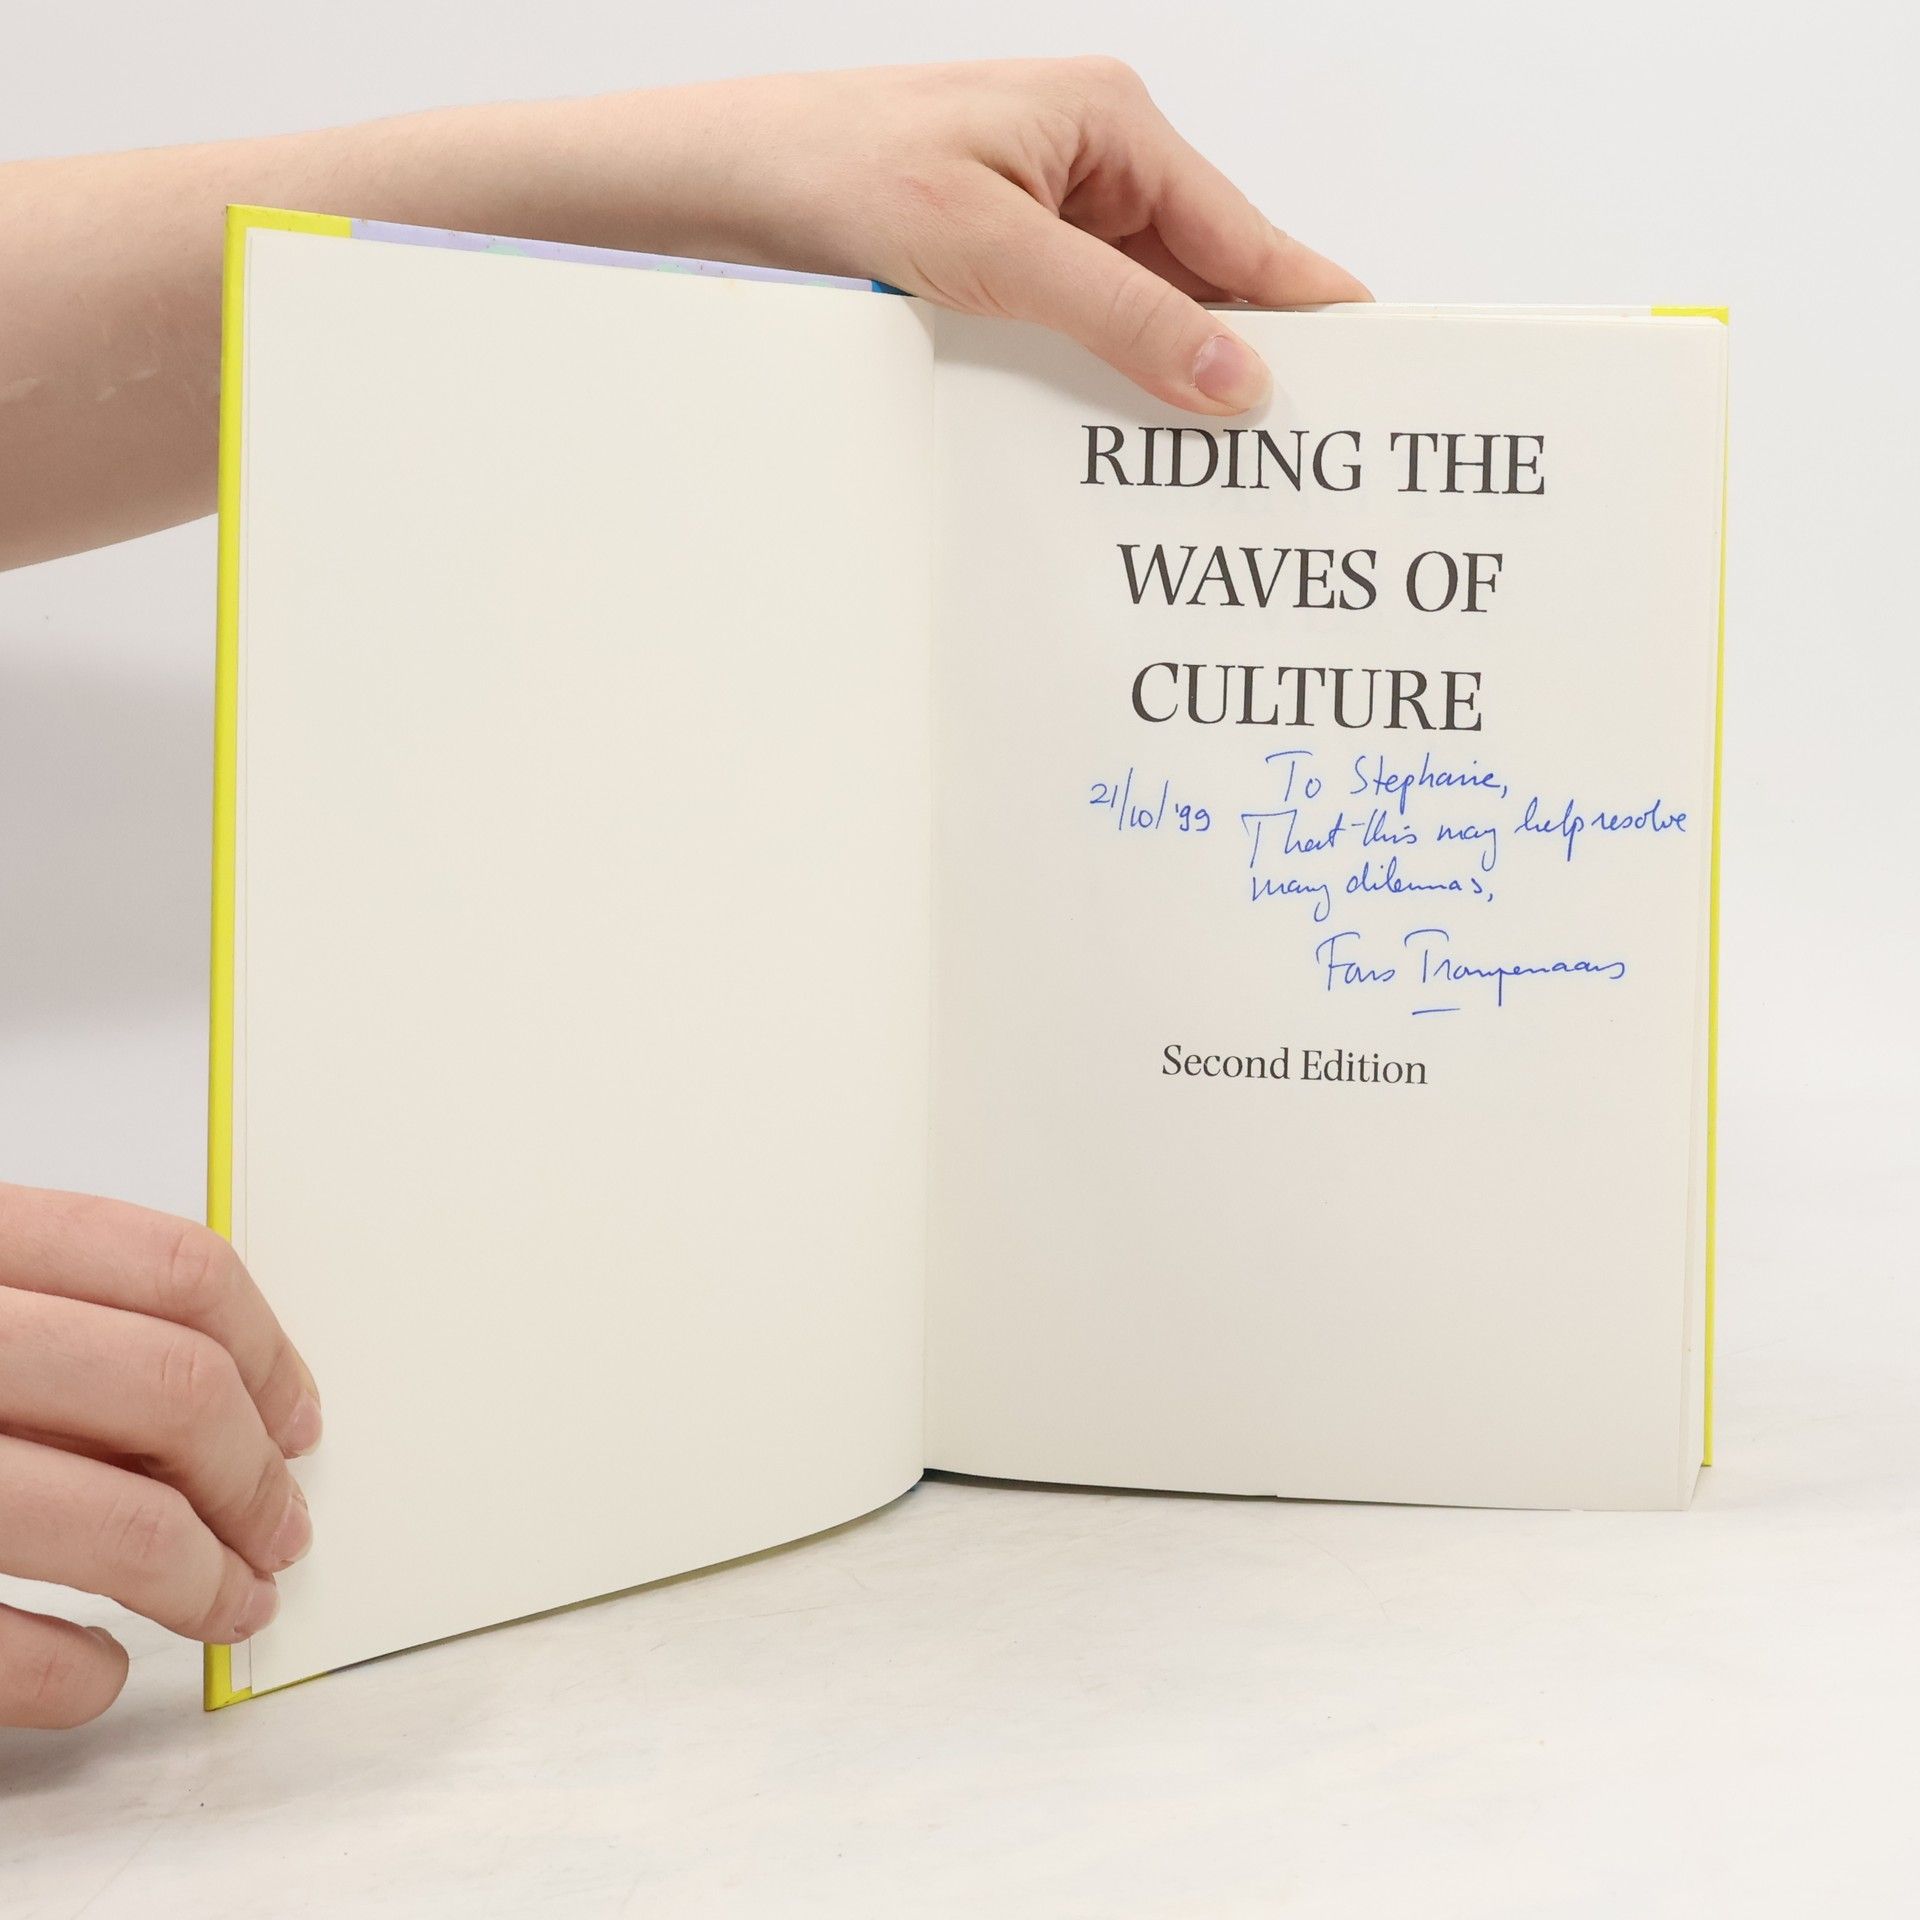 RIDING THE
WAVES OF
CULTURE
21/10/'99
To Stephanie,
That this may help resolve
many dilemmas,
Fons Trompenaars
Second Edition